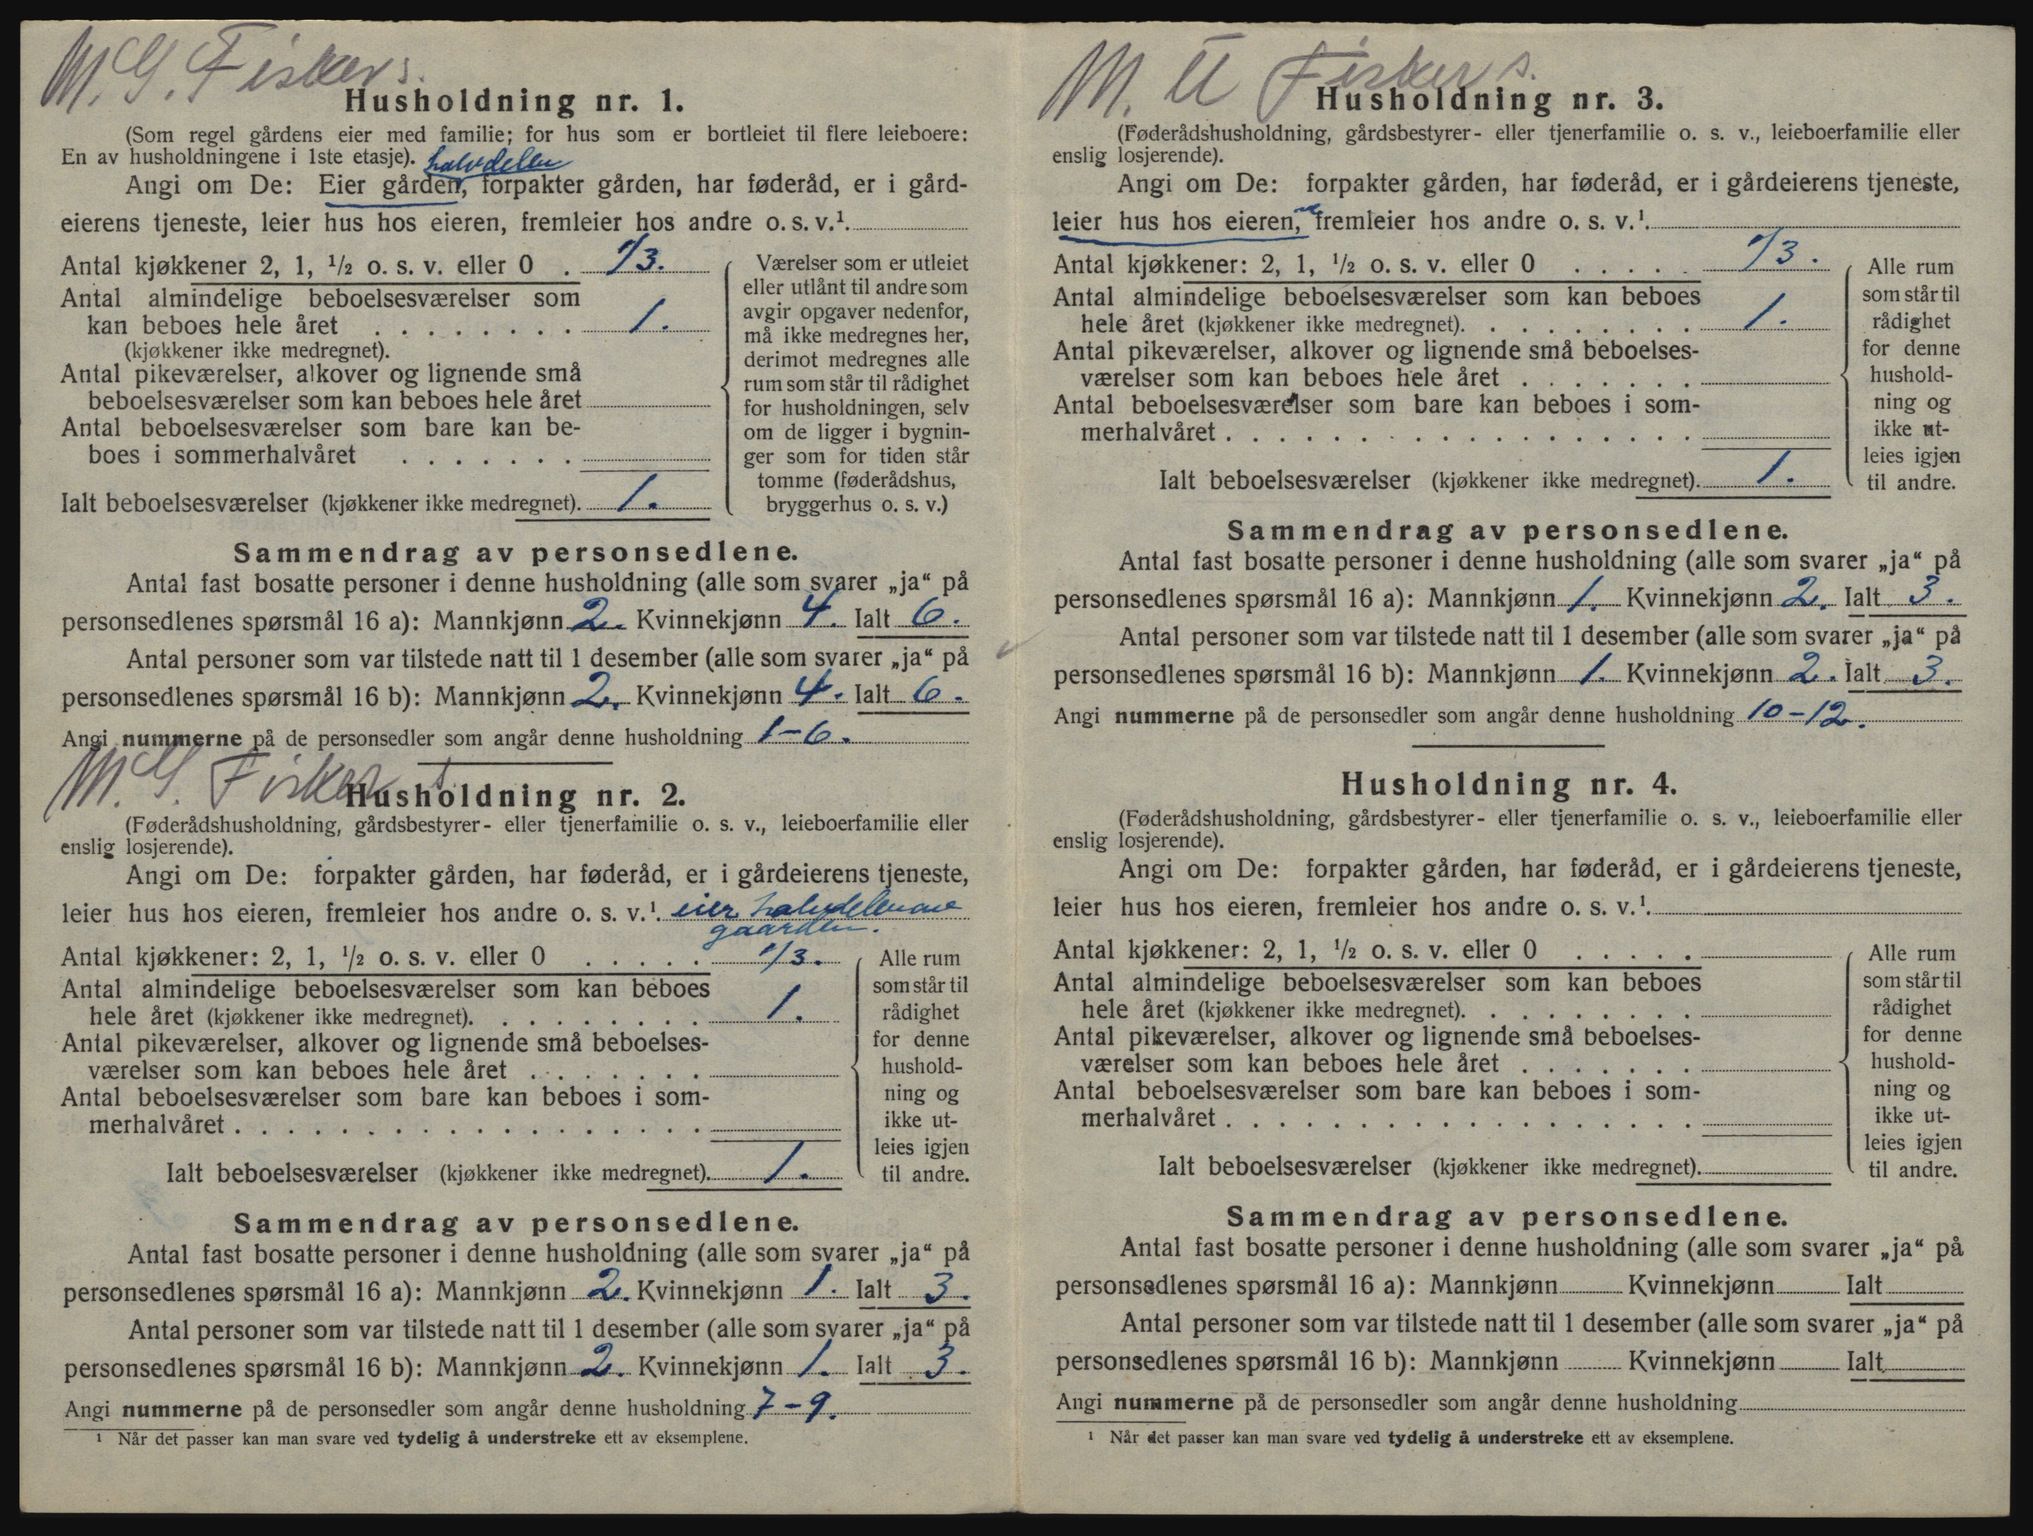 M. G. Fisker s.
Husholdning nr. 1.
(Som regel gårdens eier med familie; for hus som er bortleiet til flere leieboere:
En av husholdningene i 1ste etasje). halvdelen
Angi om De: Eier gården, forpakter gården, har føderåd, er i gård-
eierens tjeneste, leier hus hos eieren, fremleier hos andre o. s. v.¹.
Antal kjøkkener 2, 1, ½ o. s. v. eller 0 . 1/3.
Antal almindelige beboelsesværelser som
kan beboes hele året . . . . . . . . 1.
(kjøkkener ikke medregnet).
Antal pikeværelser, alkover og lignende små
beboelsesværelser som kan beboes hele året
Antal beboelsesværelser som bare kan be-
boes i sommerhalvåret . . . . . . .
Ialt beboelsesværelser (kjøkkener ikke medregnet). 1.
Værelser som er utleiet
eller utlånt til andre som
avgir opgaver nedenfor,
må ikke medregnes her,
derimot medregnes alle
rum som står til rådighet
for husholdningen, selv
om de ligger i bygnin-
ger som for tiden står
tomme (føderådshus,
bryggerhus o. s. v.)
Sammendrag av personsedlene.
Antal fast bosatte personer i denne husholdning (alle som svarer „ja“ på
personsedlenes spørsmål 16 a): Mannkjønn 2. Kvinnekjønn 4. Ialt 6.
Antal personer som var tilstede natt til 1 desember (alle som svarer „ja“ på
personsedlenes spørsmål 16 b): Mannkjønn 2. Kvinnekjønn 4. Ialt 6.
Angi nummerne på de personsedler som angår denne husholdning 1-6.
M. G. Fisker
Husholdning nr. 2.
(Føderådshusholdning, gårdsbestyrer- eller tjenerfamilie o. s. v., leieboerfamilie eller
enslig losjerende).
Angi om De: forpakter gården, har føderåd, er i gårdeierens tjeneste,
leier hus hos eieren, fremleier hos andre o. s. v.¹. eier halvdelen av
gaarden.
Antal kjøkkener: 2, 1, ½ o. s. v. eller 0 . . . . . 1/3.
Antal almindelige beboelsesværelser som kan beboes
hele året (kjøkkener ikke medregnet). . . . . . . . . 1.
Antal pikeværelser, alkover og lignende små beboelses-
værelser som kan beboes hele året . . . . . . .
Antal beboelsesværelser som bare kan beboes i som-
merhalvåret . . . . . . . . . . . . . . . . . .
Ialt beboelsesværelser (kjøkkener ikke medregnet). 1.
Alle rum
som står til
rådighet
for denne
hushold-
ning og
ikke ut-
leies igjen
til andre.
Sammendrag av personsedlene.
Antal fast bosatte personer i denne husholdning (alle som svarer „ja“ på
personsedlenes spørsmål 16 a): Mannkjønn 2. Kvinnekjønn 1. Ialt 3.
Antal personer som var tilstede natt til 1 desember (alle som svarer „ja“ på
personsedlenes spørsmål 16 b): Mannkjønn 2. Kvinnekjønn 1. Ialt 3.
Angi nummerne på de personsedler som angår denne husholdning 7-9.
¹ Når det passer kan man svare ved tydelig å understreke ett av eksemplene.
M. U Fisker s.
Husholdning nr. 3.
(Føderådshusholdning, gårdsbestyrer- eller tjenerfamilie o. s. v., leieboerfamilie eller
enslig losjerende).
Angi om De: forpakter gården, har føderåd, er i gårdeierens tjeneste,
leier hus hos eieren, fremleier hos andre o. s. v.¹.
Antal kjøkkener: 2, 1, ½ o. s. v. eller 0 . . . . . 1/3.
Antal almindelige beboelsesværelser som kan beboes
hele året (kjøkkener ikke medregnet). . . . . . . . . 1.
Antal pikeværelser, alkover og lignende små beboelses-
værelser som kan beboes hele året . . . . . . .
Antal beboelsesværelser som bare kan beboes i som-
merhalvåret . . . . . . . . . . . . . . . . . .
Ialt beboelsesværelser (kjøkkener ikke medregnet). 1.
Alle rum
som står til
rådighet
for denne
hushold-
ning og
ikke ut-
leies igjen
til andre.
Sammendrag av personsedlene.
Antal fast bosatte personer i denne husholdning (alle som svarer „ja“ på
personsedlenes spørsmål 16 a): Mannkjønn 1. Kvinnekjønn 2. Ialt 3.
Antal personer som var tilstede natt til 1 desember (alle som svarer „ja“ på
personsedlenes spørsmål 16 b): Mannkjønn 1. Kvinnekjønn 2. Ialt 3.
Angi nummerne på de personsedler som angår denne husholdning 10-12.
Husholdning nr. 4.
(Føderådshusholdning, gårdsbestyrer- eller tjenerfamilie o. s. v., leieboerfamilie eller
enslig losjerende).
Angi om De: forpakter gården, har føderåd, er i gårdeierens tjeneste,
leier hus hos eieren, fremleier hos andre o. s. v.¹.
Antal kjøkkener: 2, 1, ½ o. s. v. eller 0 . . . . .
Antal almindelige beboelsesværelser som kan beboes
hele året (kjøkkener ikke medregnet). . . . . . . . .
Antal pikeværelser, alkover og lignende små beboelses-
værelser som kan beboes hele året . . . . . . .
Antal beboelsesværelser som bare kan beboes i som-
merhalvåret . . . . . . . . . . . . . . . . . .
Ialt beboelsesværelser (kjøkkener ikke medregnet).
Alle rum
som står til
rådighet
for denne
hushold-
ning og
ikke ut-
leies igjen
til andre.
Sammendrag av personsedlene.
Antal fast bosatte personer i denne husholdning (alle som svarer „ja“ på
personsedlenes spørsmål 16 a): Mannkjønn Kvinnekjønn Ialt
Antal personer som var tilstede natt til 1 desember (alle som svarer „ja“ på
personsedlenes spørsmål 16 b): Mannkjønn Kvinnekjønn Ialt
Angi nummerne på de personsedler som angår denne husholdning
¹ Når det passer kan man svare ved tydelig å understreke ett av eksemplene.